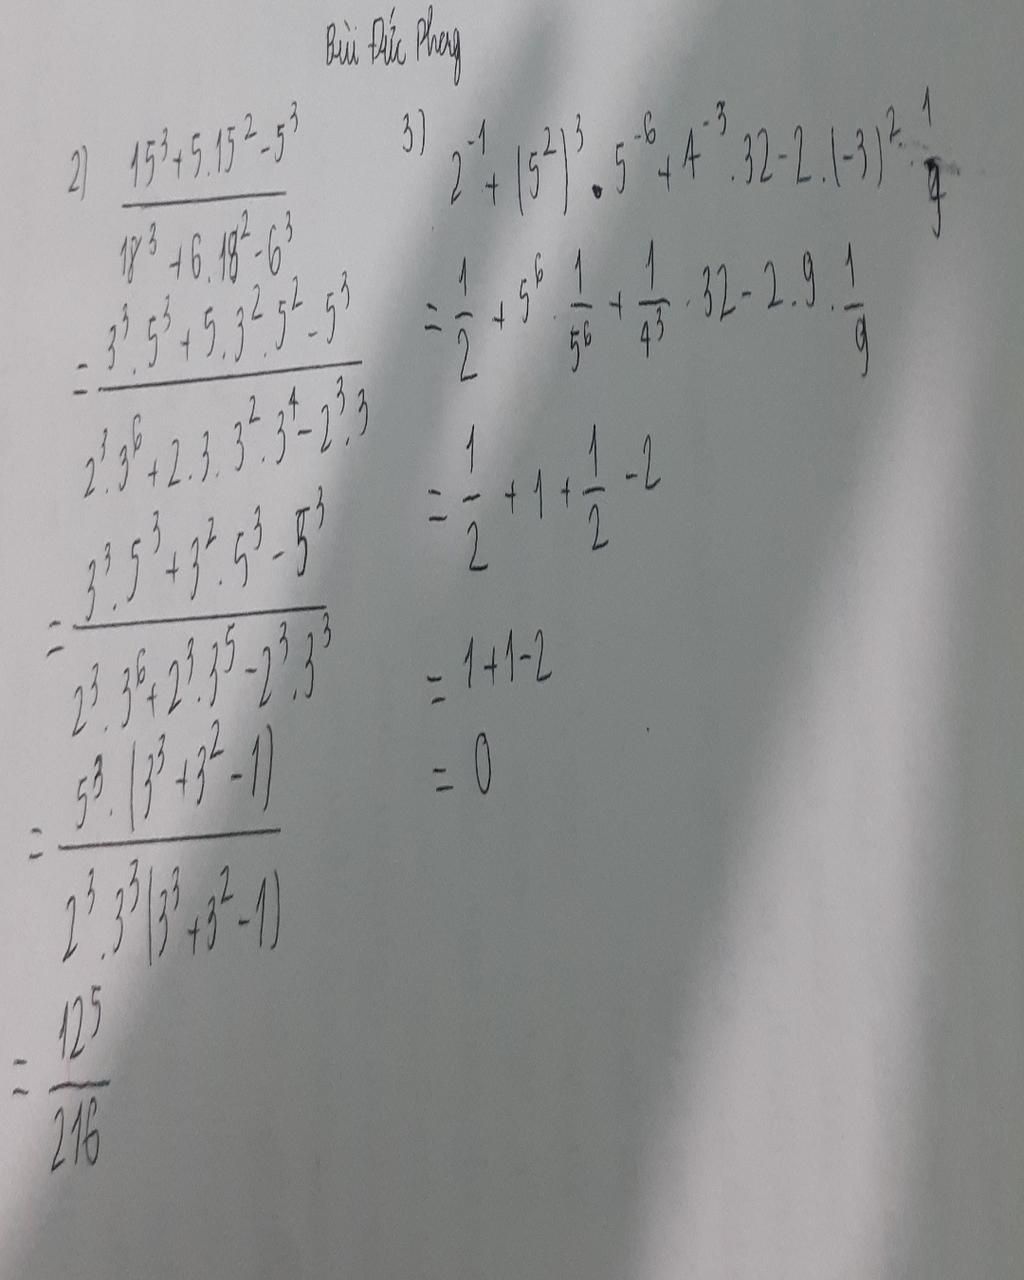 Bùi Đức Phong
2) (15³ + 5.15² - 5³) / (18³ + 6.18² - 6³)
= (3³.5³ + 5.3².5² - 5³) / (2³.3⁶ + 2.3.3².3⁴ - 2³.3)
= (3³.5³ + 3².5³ - 5³) / (2³.3⁶ + 2³.3⁵ - 2³.3³)
= 5³.(3³ + 3² - 1) / 2³.3³(3³ + 3² - 1)
= 125 / 216
3) 2⁻¹ + (5²)³ . 5⁻⁶ + 4⁻³ . 32 - 2.(-3)² . 1/9
= 1/2 + 5⁶ . 1/5⁶ + 1/4³ . 32 - 2.9 . 1/9
= 1/2 + 1 + 1/2 - 2
= 1 + 1 - 2
= 0